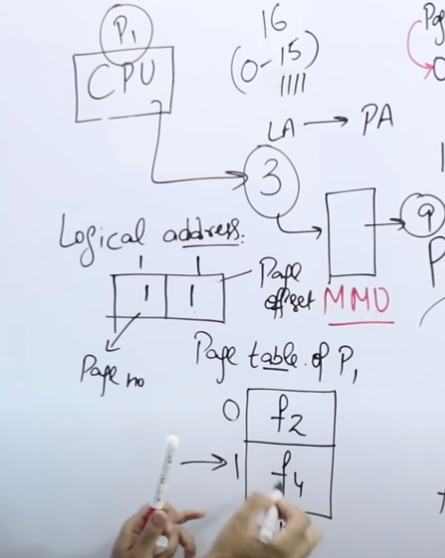 P1
CPU
16
(0-15)
1111
LA → PA
3
9
MMU
Logical address:
1 1
1 1
Page
offset
Page no
Page table of P1
0 f2
→ 1 f4